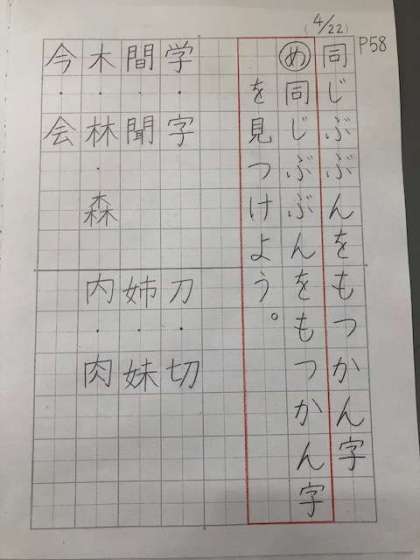 P58
(4/22)
同じぶぶんをもつかん字
め同じぶぶんをもつかん字
を見つけよう。
学・字 刀・切
間・聞 姉・妹
木・林・森 内・肉
今・会